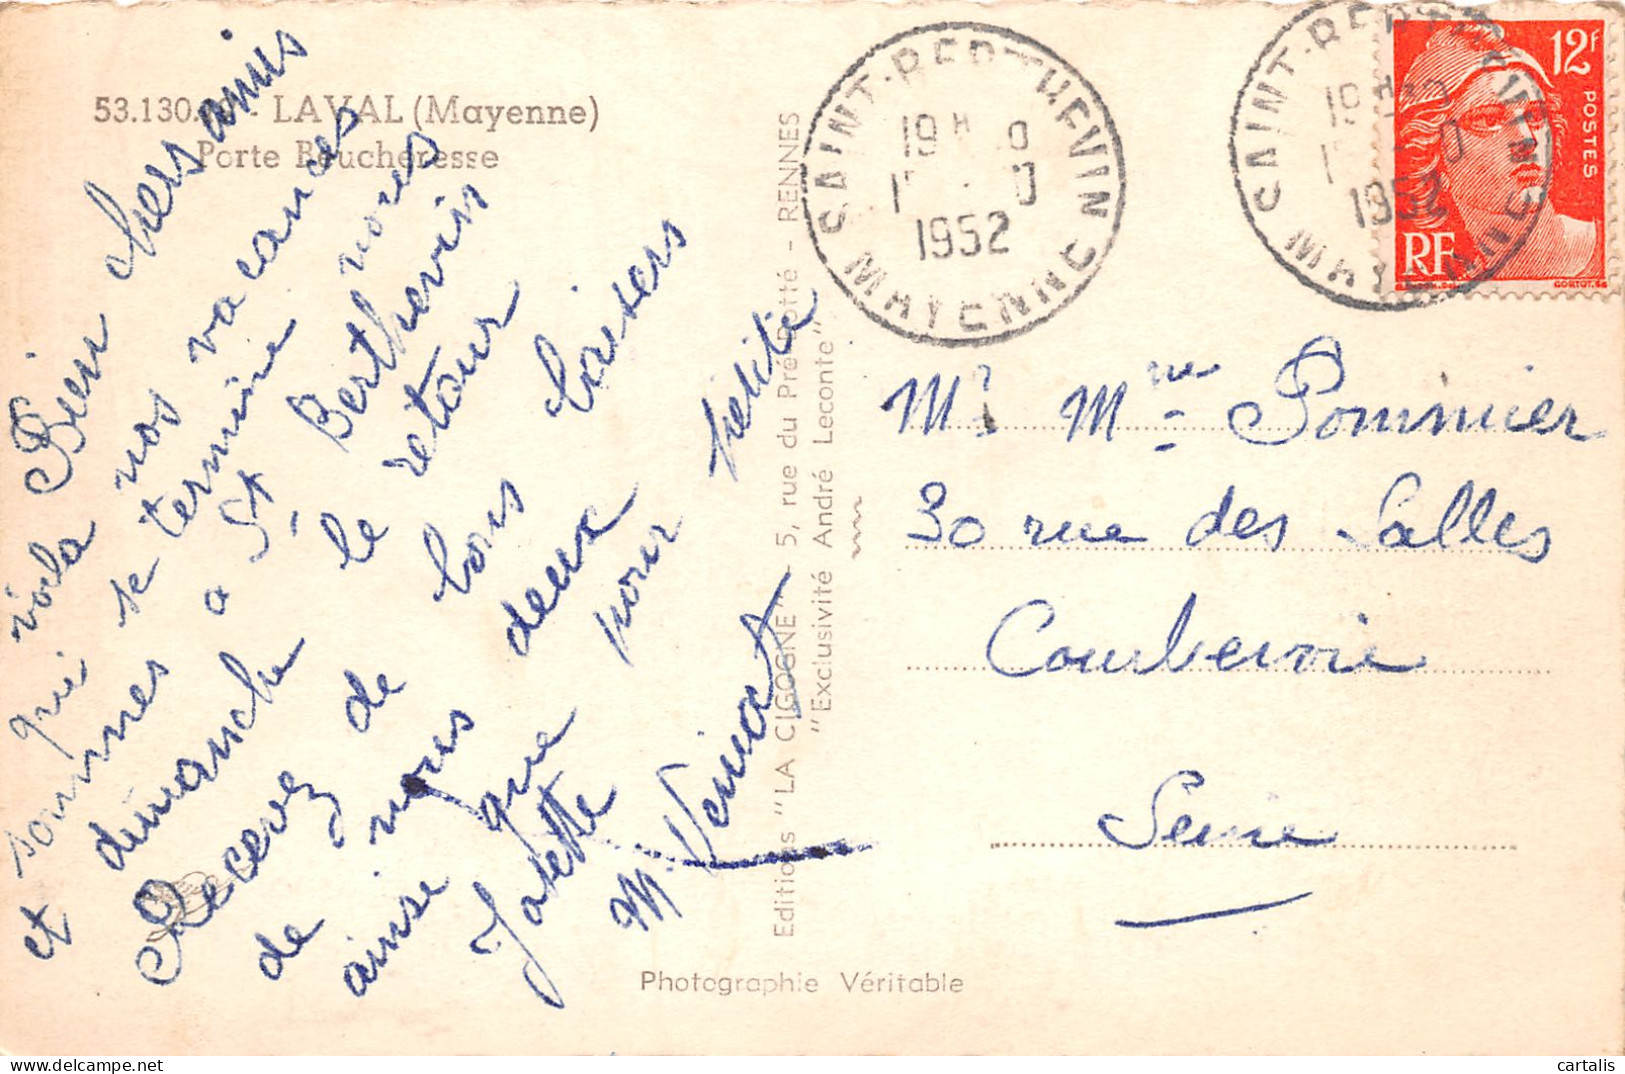 53.130. - LAVAL (Mayenne)
Porte Beucheresse
Bien chers amis
voila nos vacances
qui se termine nous
sommes a St Berthevin
et dimanche le retour
Recevez de bons baisers
de nous deux
ainsi que pour petite
Josette
M. Venat
Editions "LA CIGOGNE" - 5, rue du Pré-Botté - RENNES
"Exclusivité André Leconte"
Photographie Véritable
SAINT-BERTHEVIN
19H
1952
MAYENNE
SAINT-BERTHEVIN
1952
MAYENNE
12F
POSTES
RF
GORTOT.
Mr Mme Pommier
30 rue des Salles
Courbevoie
Seine
cartalis